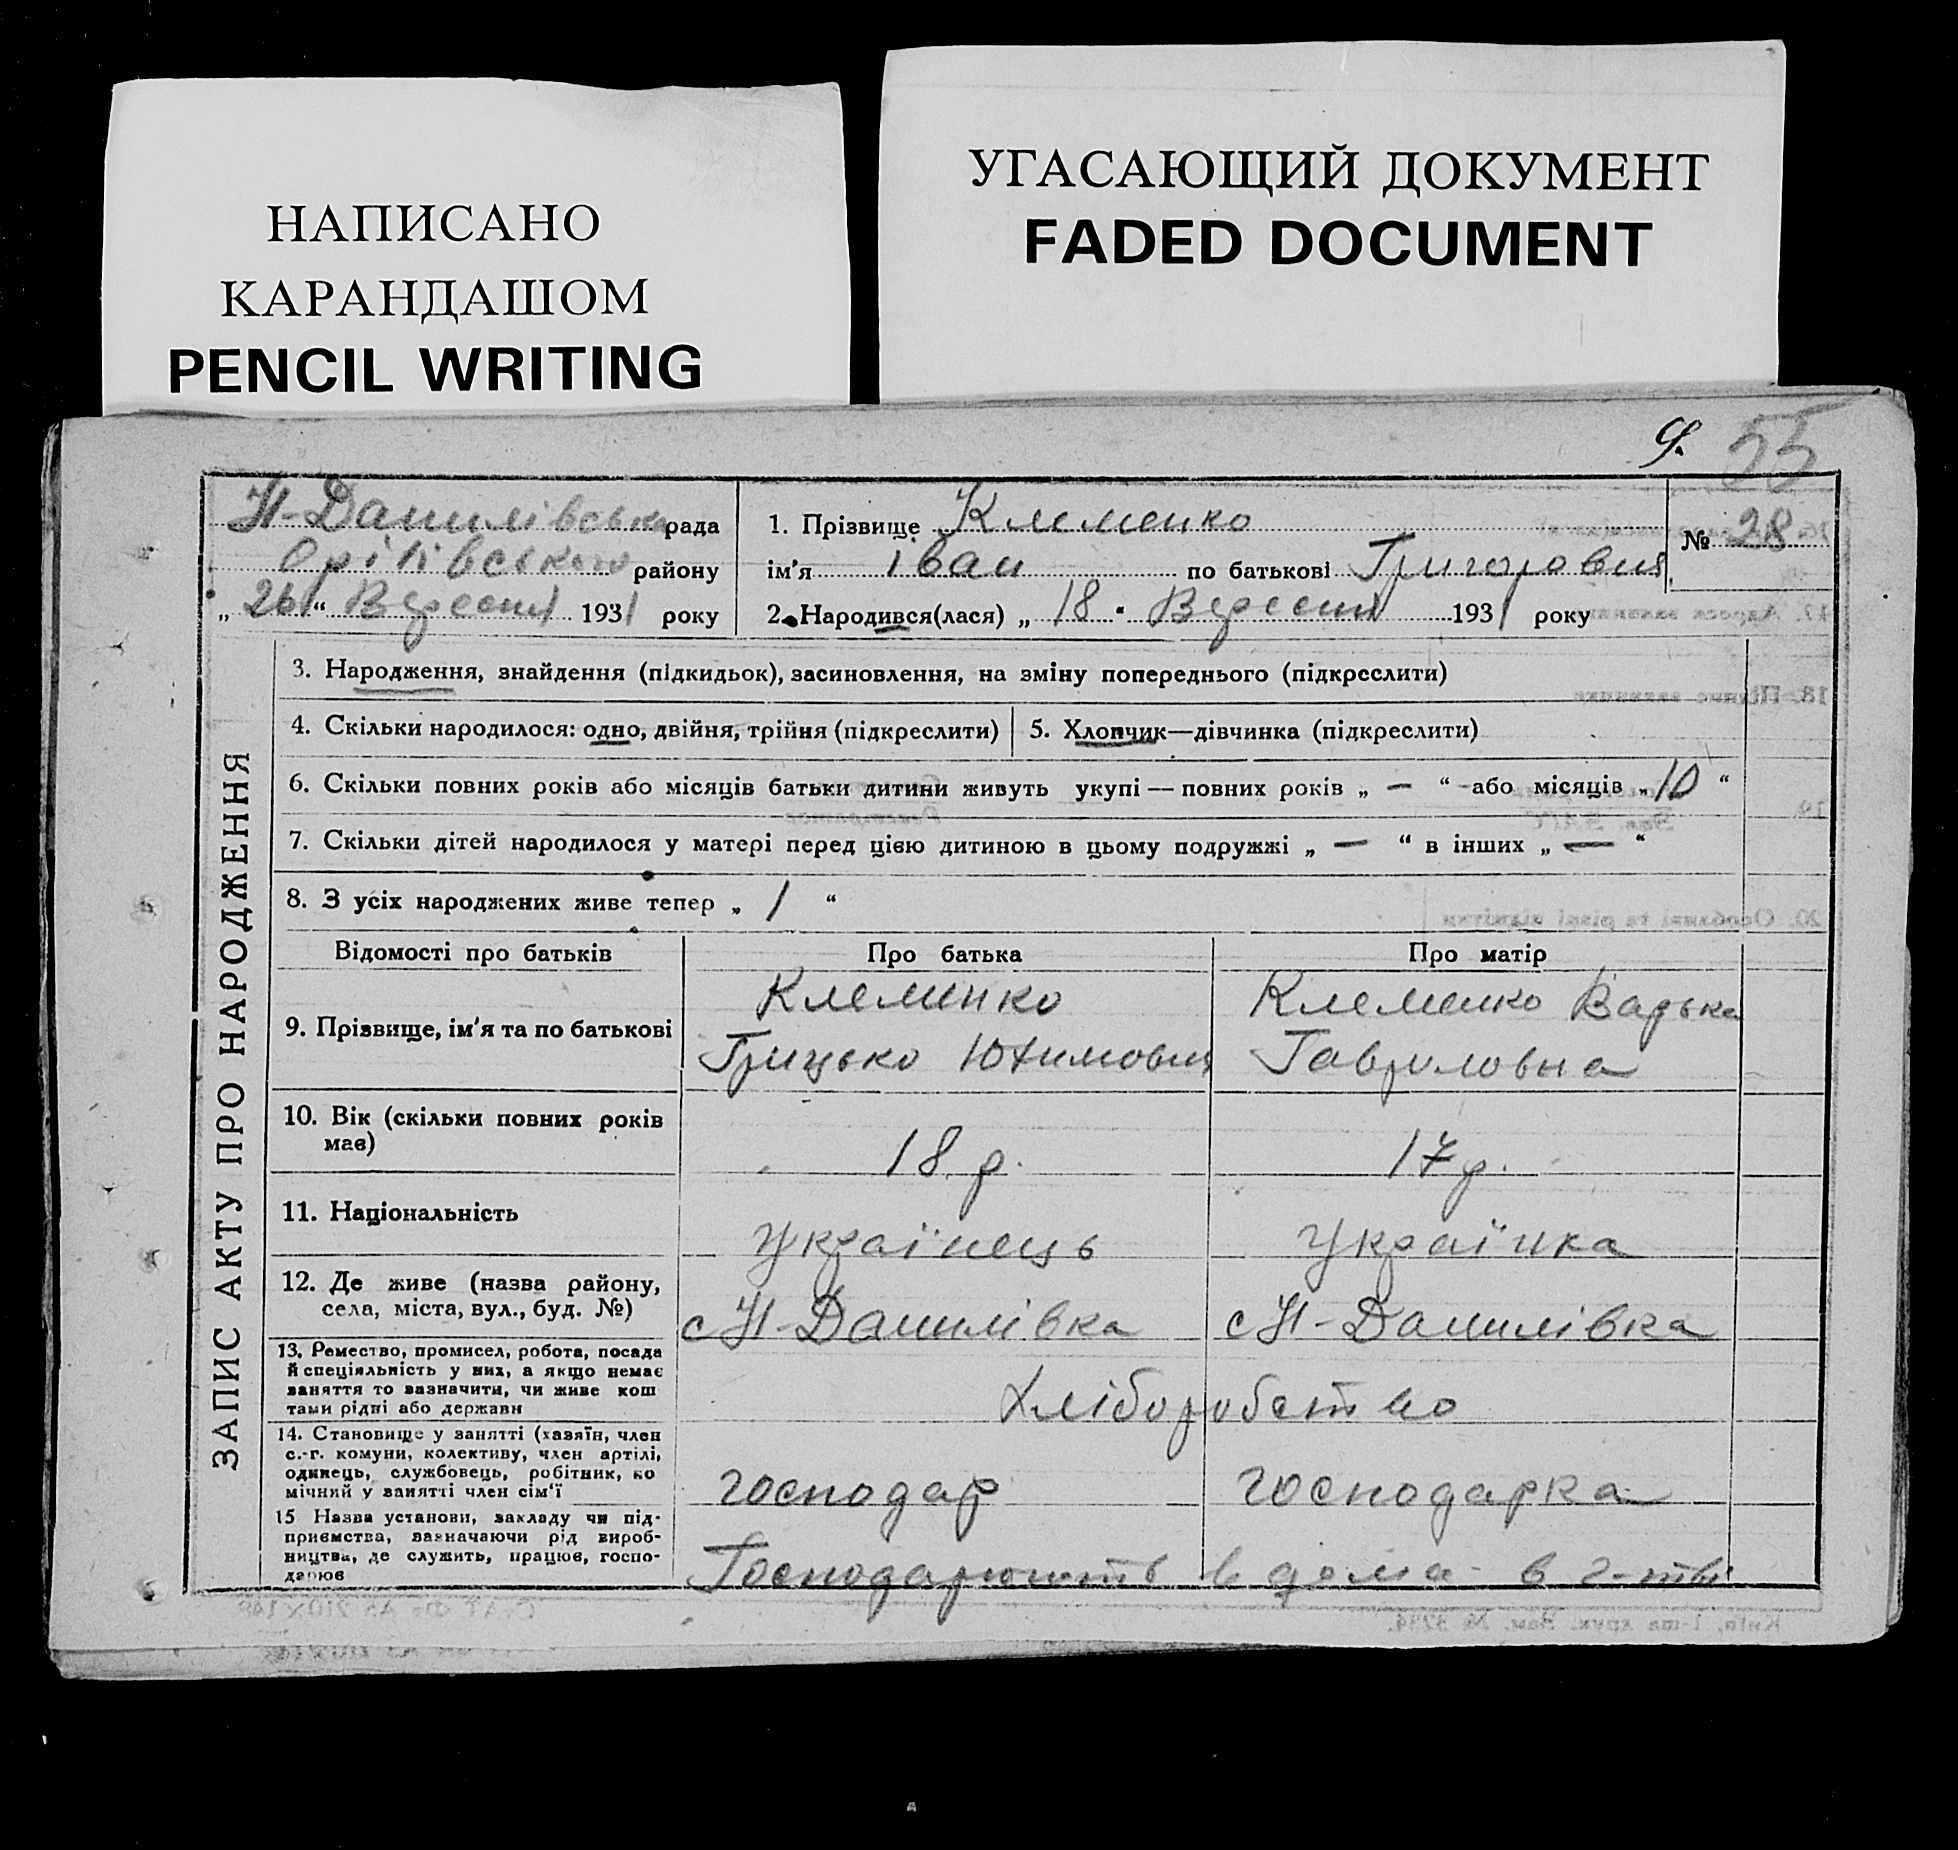 НАПИСАНО
КАРАНДАШОМ
PENCIL WRITING
УГАСАЮЩИЙ ДОКУМЕНТ
FADED DOCUMENT
55
Н-Данилівська рада
Орілівського району
„ 26 “ Вересня 1931 року
1. Прізвище Клеменко
ім'я Іван по батькові Григорович
2. Народився(лася) „ 18. Вересня 1931 року
№ 28
ЗАПИС АКТУ ПРО НАРОДЖЕННЯ
3. Народження, знайдення (підкидьок), засиновлення, на зміну попереднього (підкреслити)
4. Скільки народилося: одно, двійня, трійня (підкреслити)
5. Хлопчик—дівчинка (підкреслити)
6. Скільки повних років або місяців батьки дитини живуть укупі — повних років „ — “ або місяців „ 10 “
7. Скільки дітей народилося у матері перед цією дитиною в цьому подружжі „ — “ в інших „ — “
8. З усіх народжених живе тепер „ 1 “
Відомості про батьків Про батька Про матір
9. Прізвище, ім'я та по батькові
Клеменко
Грицько Юхимович
Клеменко Варька
Гавриловна
10. Вік (скільки повних років
має)
18 р. 17 р.
11. Національність
Українець Українка
12. Де живе (назва району,
села, міста, вул., буд. №)
с Н-Данилівка с Н-Данилівка
13. Ремество, промисел, робота, посада
й спеціяльність у них, а якщо немає
заняття то зазначити, чи живе кош
тами рідні або держави
Хліборобство
14. Становище у занятті (хазяїн, член
с.-г. комуни, колективу, член артілі,
одинець, службовець, робітник, по
мічний у занятті член сім'ї
господар господарка
15 Назва установи, закладу чи під-
приємства, зазначаючи рід вироб-
ництва, де служить, працює, госпо-
дарює
Господарюють в дома в г-тві